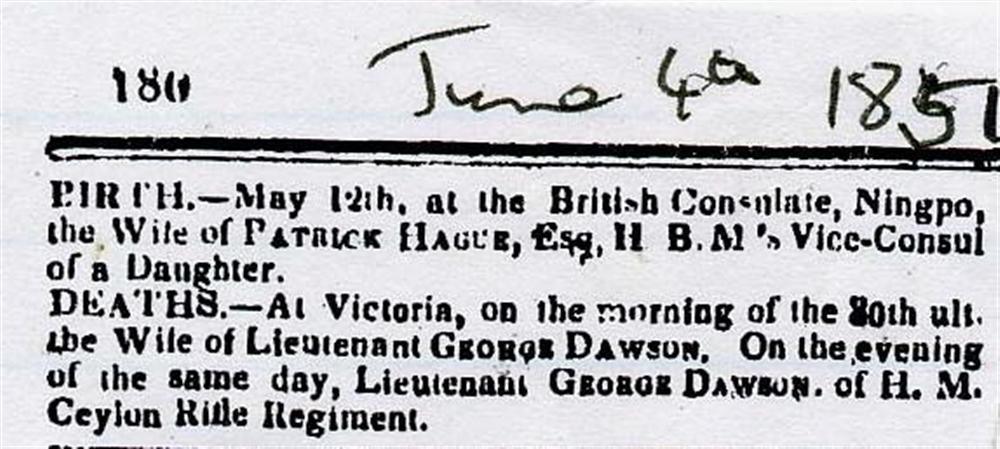 180 June 4th 1851
BIRTH.—May 12th, at the British Consulate, Ningpo,
the Wife of PATRICK HAGUE, Esq, H B.M's Vice-Consul
of a Daughter.
DEATHS.—At Victoria, on the morning of the 30th ult.
the Wife of Lieutenant GEORGE DAWSON. On the evening
of the same day, Lieutenant GEORGE DAWSON. of H. M.
Ceylon Rifle Regiment.